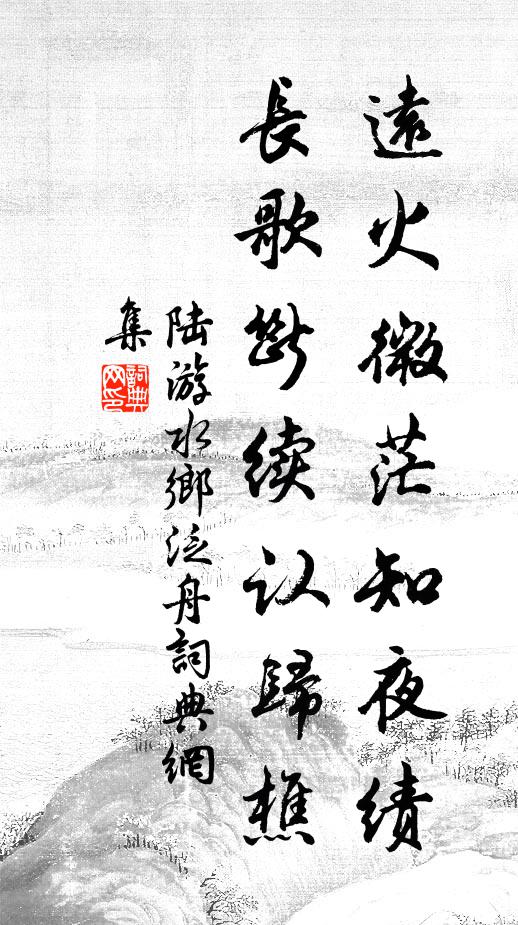 遠火微茫知夜績
長歌斷续认歸樵
陆游水鄉泛舟詞典網
集
詞典网印